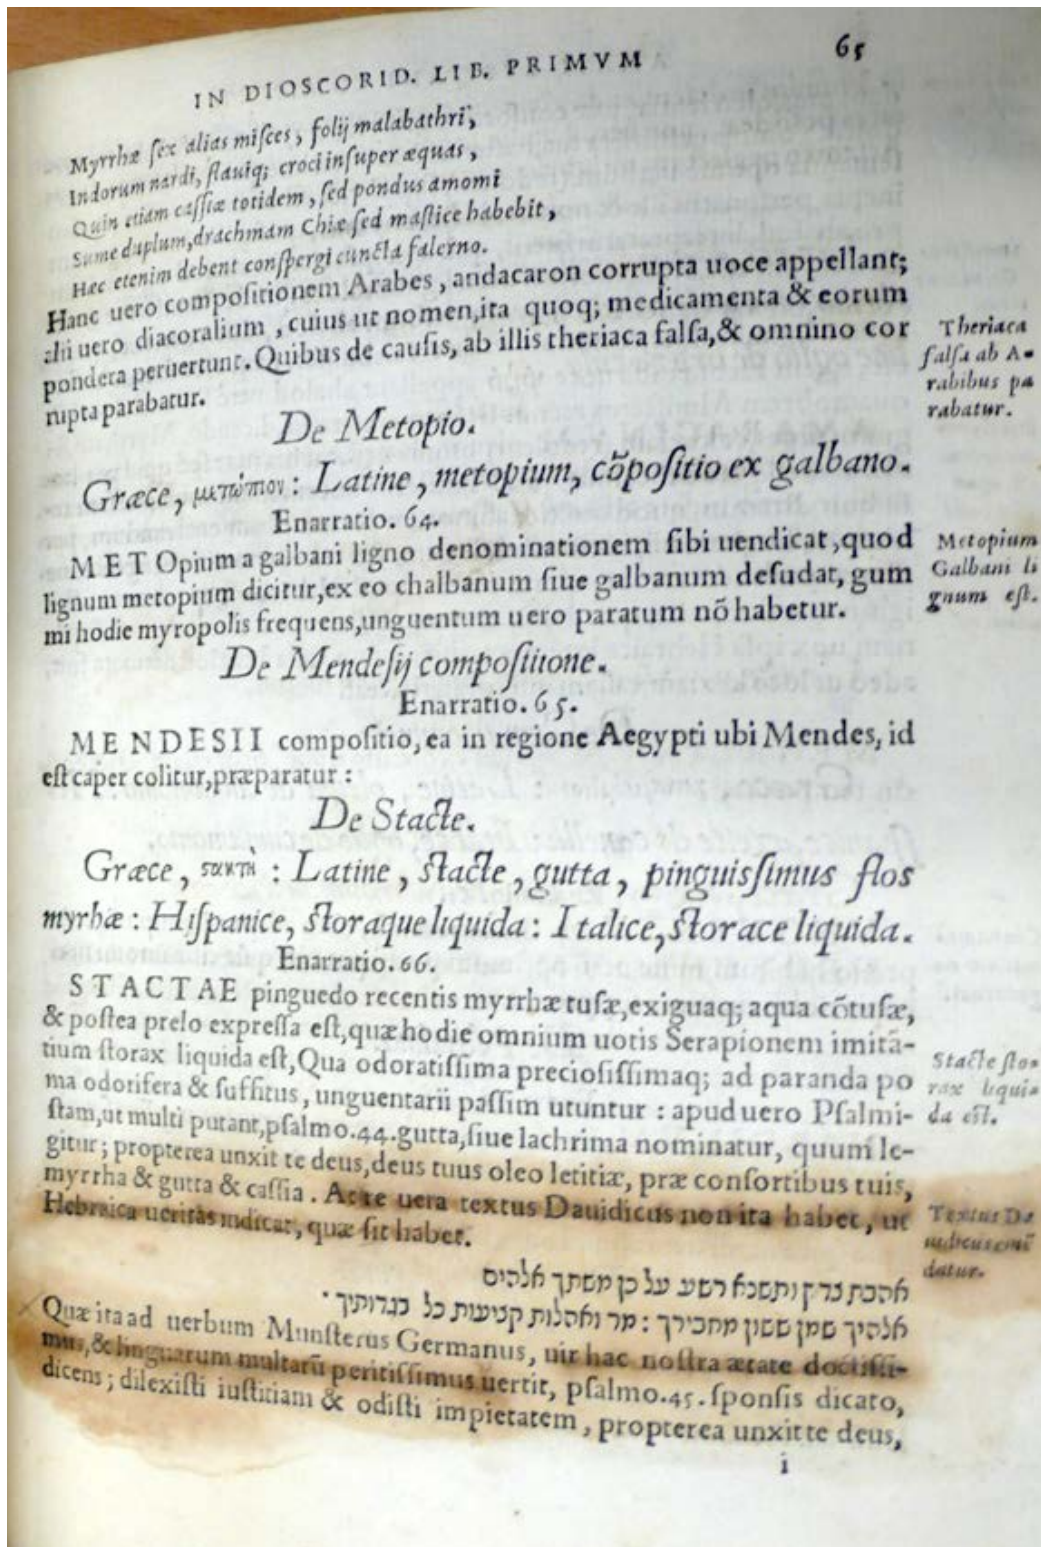 IN DIOSCORID. LIB. PRIMVM
65
Myrrhæ ſex alias miſces, folij malabathri,
Indorum nardi, ſtauiq; croci inſuper æquas,
Quin etiam caſſiæ totidem, ſed pondus amomi
Sume duplum, drachmam Chiæ ſed maſtice habebit,
Hæc etenim debent conſpergi cuncta falerno.
Hanc uero compoſitionem Arabes, andacaron corrupta uoce appellant;
alii uero diacoralium, cuius ut nomen, ita quoq; medicamenta & eorum
pondera peruertunt. Quibus de cauſis, ab illis theriaca falſa, & omnino cor
rupta parabatur.
Theriaca
falſa ab A-
rabibus pa
rabatur.
De Metopio.
Græce, μετώπιον: Latine, metopium, cõpoſitio ex galbano.
Enarratio. 64.
METOpium a galbani ligno denominationem ſibi uendicat, quod
lignum metopium dicitur, ex eo chalbanum ſiue galbanum deſudat, gum
mi hodie myropolis frequens, unguentum uero paratum nõ habetur.
Metopium
Galbani li
gnum eſt.
De Mendeſij compoſitione.
Enarratio. 65.
MENDESII compoſitio, ea in regione Aegypti ubi Mendes, id
eſt caper colitur, præparatur:
De Stacte.
Græce, στακτὴ: Latine, ſtacte, gutta, pinguisſimus flos
myrhæ: Hiſpanice, ſtoraque liquida: Italice, ſtorace liquida.
Enarratio. 66.
STACTAE pinguedo recentis myrrhæ tuſæ, exiguaq; aqua cõtuſæ,
& poſtea prelo expreſſa eſt, quæ hodie omnium uotis Serapionem imitã-
tium ſtorax liquida eſt, Qua odoratiſſima precioſiſſimaq; ad paranda po
ma odorifera & ſuffitus, unguentarii paſſim utuntur: apud uero Pſalmi-
ſtam, ut multi putant, pſalmo. 44. gutta, ſiue lachrima nominatur, quum le-
gitur; propterea unxit te deus, deus tuus oleo letitiæ, præ conſortibus tuis,
myrrha & gutta & caſſia. At te uera textus Dauidicus non ita habet, ut
Hebraica ueritas indicat, quæ ſic habet.
Stacte ſto-
rax liqui-
da eſt.
Textus Da
uidicus emẽ
datur.
אהבת צדק ותשנא רשע על כן משחך אלהים
אלהיך שמן ששון מחבירך: מר ואהלות קציעות כל בגדותיך.
Quæ ita ad uerbum Munſterus Germanus, uir hac noſtra ætate doctiſſi-
mus, & linguarum multarũ peritiſſimus uertit, pſalmo. 45. ſponſis dicato,
dicens; dilexiſti iuſtitiam & odiſti impietatem, propterea unxit te deus,
i